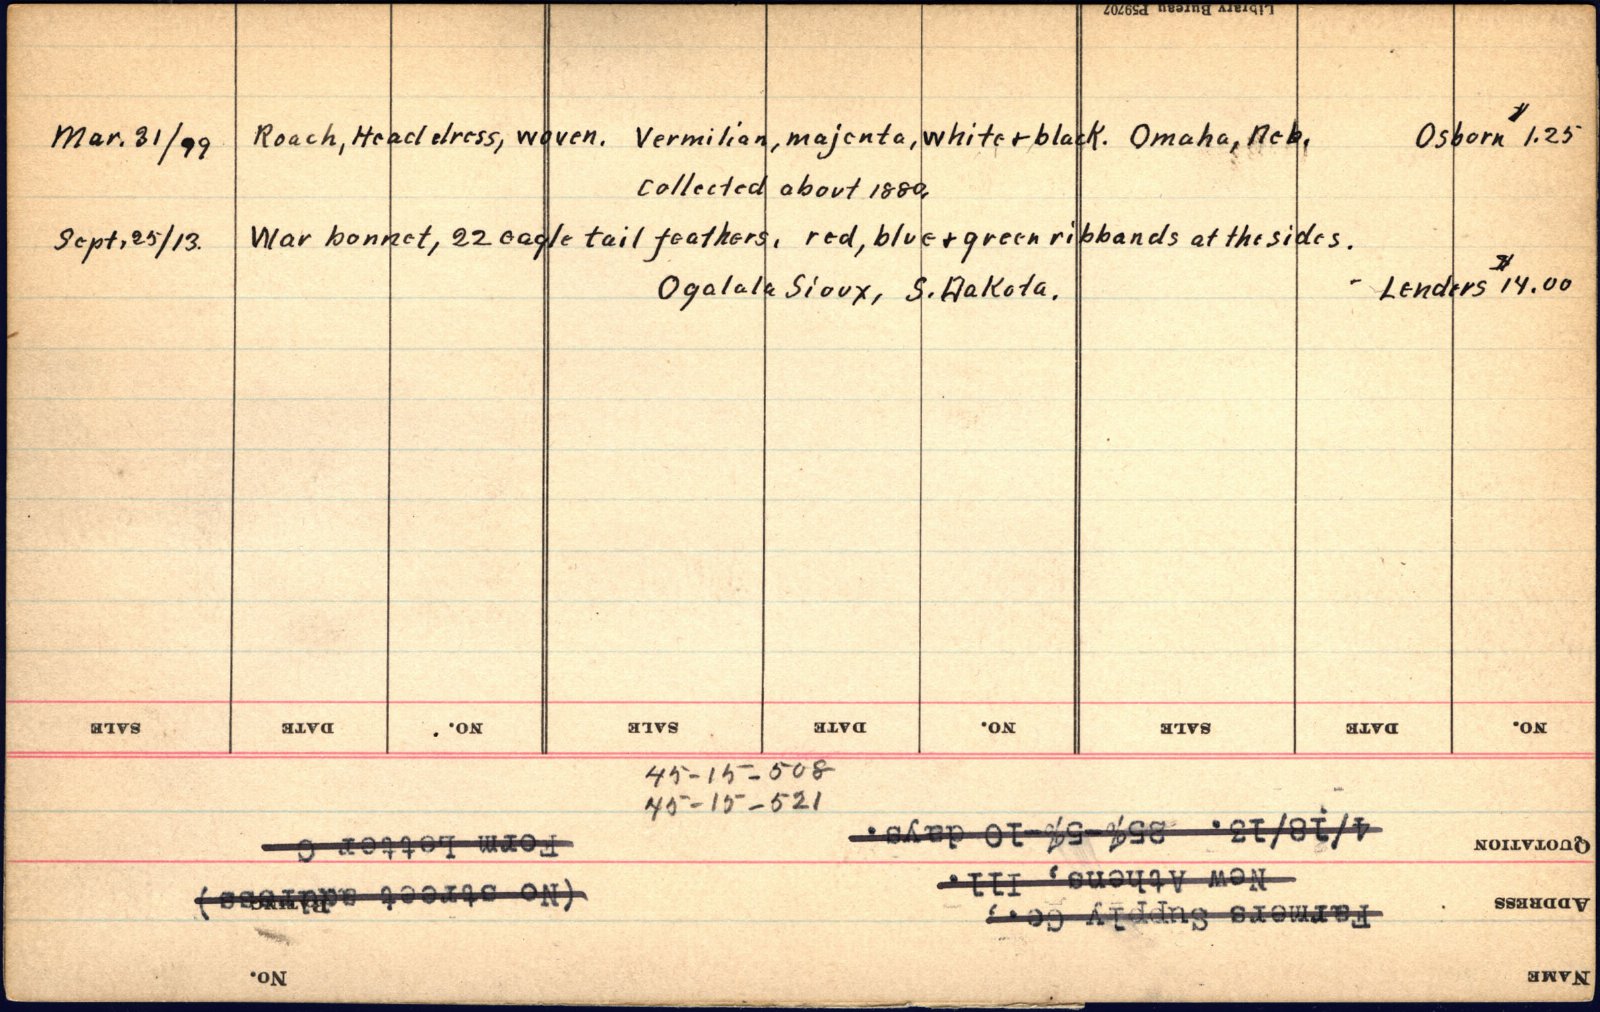 Library Bureau P59707
Mar. 31/99 Roach, Headdress, woven. Vermilian, majenta, white + black. Omaha, Neb. Osborn $1.25
collected about 1880.
Sept. 25/13. War bonnet, 22 eagle tail feathers. red, blue + green ribbands at the sides.
Ogalala Sioux, S. Dakota. - Lenders $14.00
SALE DATE NO. SALE DATE NO. SALE DATE NO.
45-15-508
45-15-521
Form Letter C 4/18/13. 25%-5%-10 days. QUOTATION
New Athens, Ill.
(No street address) ADDRESS
Farmers Supply Co.,
No. NAME